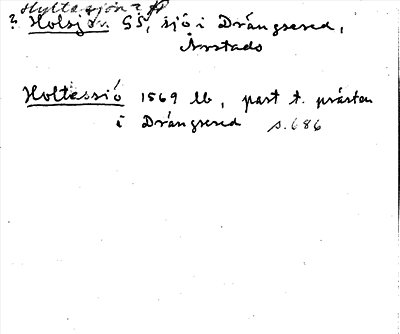 Hyltasjön?
? Holsjön GS, sjö i Drängsered,
Årstads
Holtessiö 1569 lb, part t. prästen
i Drängsered s.686